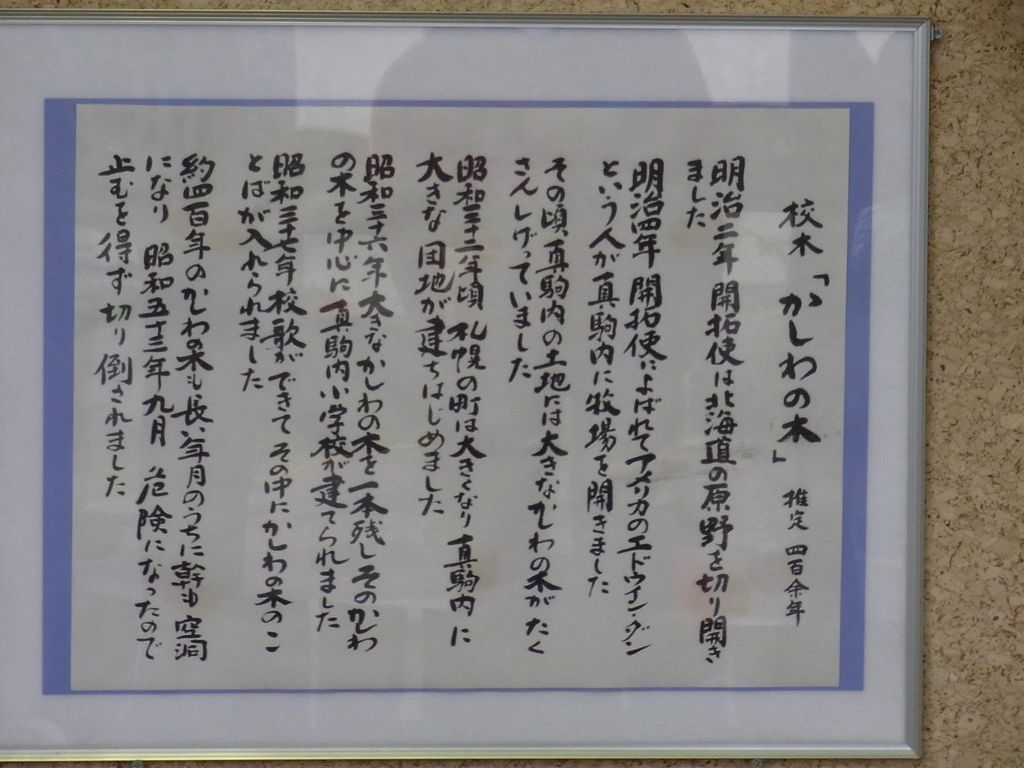 校木「かしわの木」 推定 四百余年
明治二年開拓使は北海道の原野を切り開き
ました
明治四年 開拓使によばれてアメリカのエドウィン・ダン
という人が真駒内に牧場を開きました
その頃真駒内の土地には大きなかしわの木がたく
さんしげっていました
昭和三十二年頃 札幌の町は大きくなり 真駒内に
大きな団地が建ちはじめました
昭和三十六年大きなかしわの木を一本残しそのかしわ
の木を中心に 真駒内小学校が建てられました
昭和三十七年校歌ができて その中にかしわの木のこ
とばが入れられました
約四百年のかしわの木も長い年月のうちに幹も空洞
になり 昭和五十三年九月 危険になったので
止むを得ず 切り倒されました